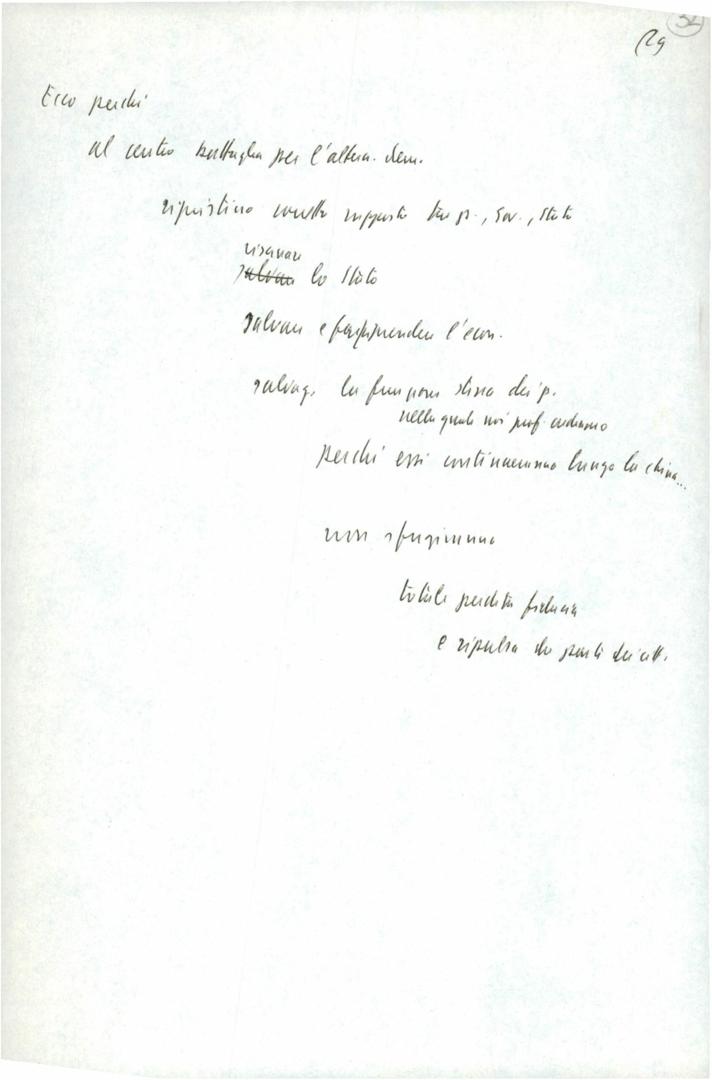 32
(29
Ecco perché
al centro battaglia per l'altern. dem.
ripristino corretto rapporto tra p., Gov., Stato
risanare
salvare lo Stato
salvare e far riprendere l'econ.
salvag. la funzione stessa dei p.
nella quale noi prof. crediamo
perché essi continueranno lungo la china...
non sfuggiranno
totale perdita fiducia
e ripulsa da parte dei citt.